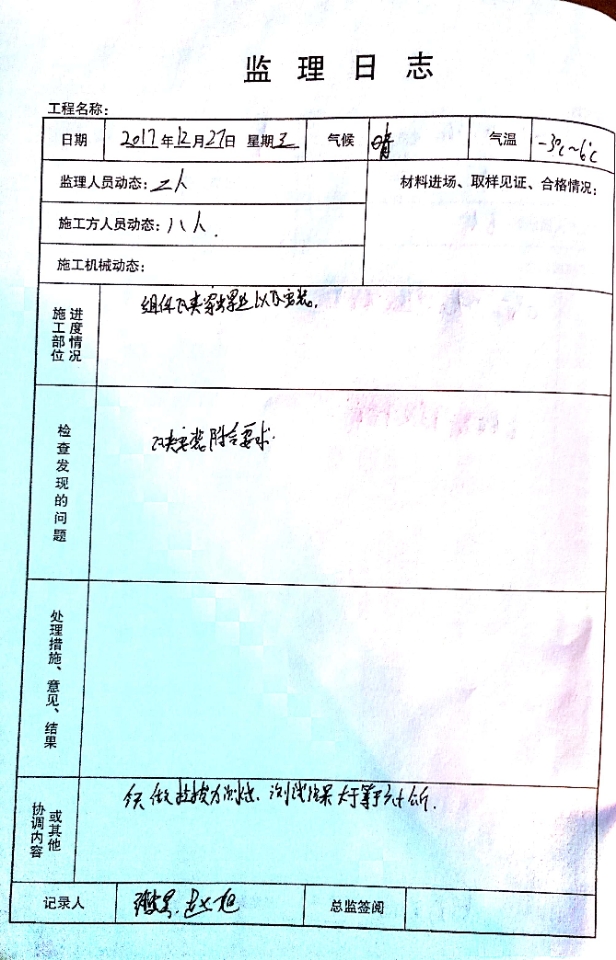 监理日志
工程名称:
日期 2017年12月27日 星期三 气候 晴 气温 -3℃~6℃
监理人员动态:二人 材料进场、取样见证、合格情况:
施工方人员动态:八人.
施工机械动态:
施工部位 进度情况 组件瓦夹 以及安装.
检查发现的问题 瓦夹安装附合要求.
处理措施、意见、结果
协调内容 或其他 做拉拔力测试、测试结果大于等于 公斤.
记录人 总监签阅